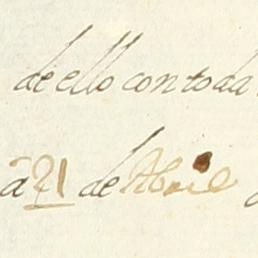 de ello con toda
a 21 de Abril